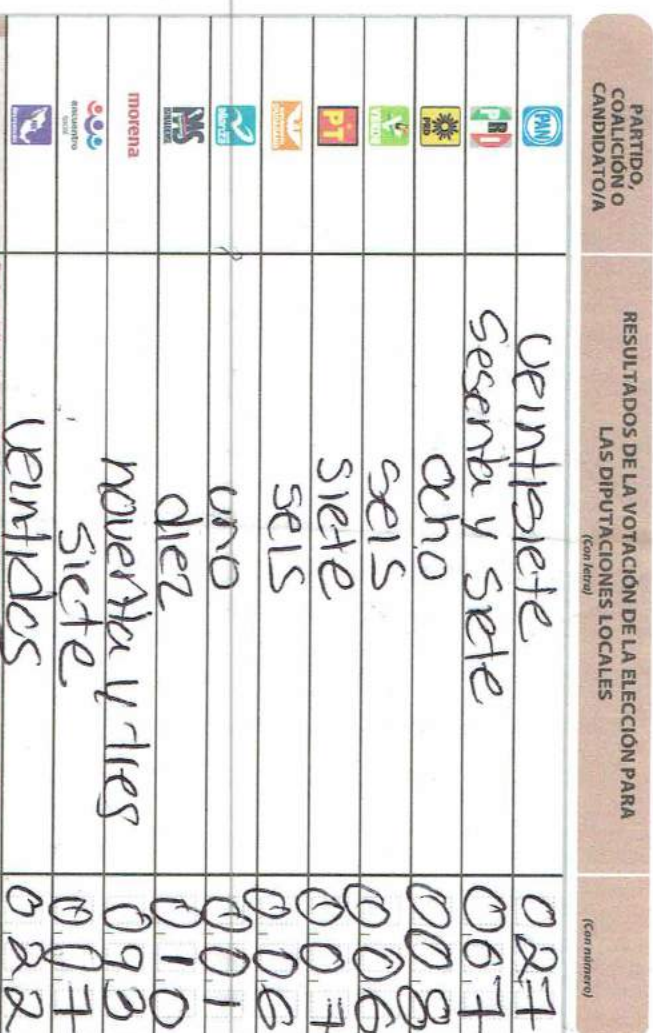 PARTIDO,
COALICIÓN O
CANDIDATO/A
RESULTADOS DE LA VOTACIÓN DE LA ELECCIÓN PARA
LAS DIPUTACIONES LOCALES
(Con letra)
(Con número)
PAN veintisiete 027
PRI sesenta y siete 067
PRD ocho 008
VERDE seis 006
PT siete 007
seis 006
uno 001
diez 010
morena noventa y tres 093
encuentro social siete 007
veintidos 022